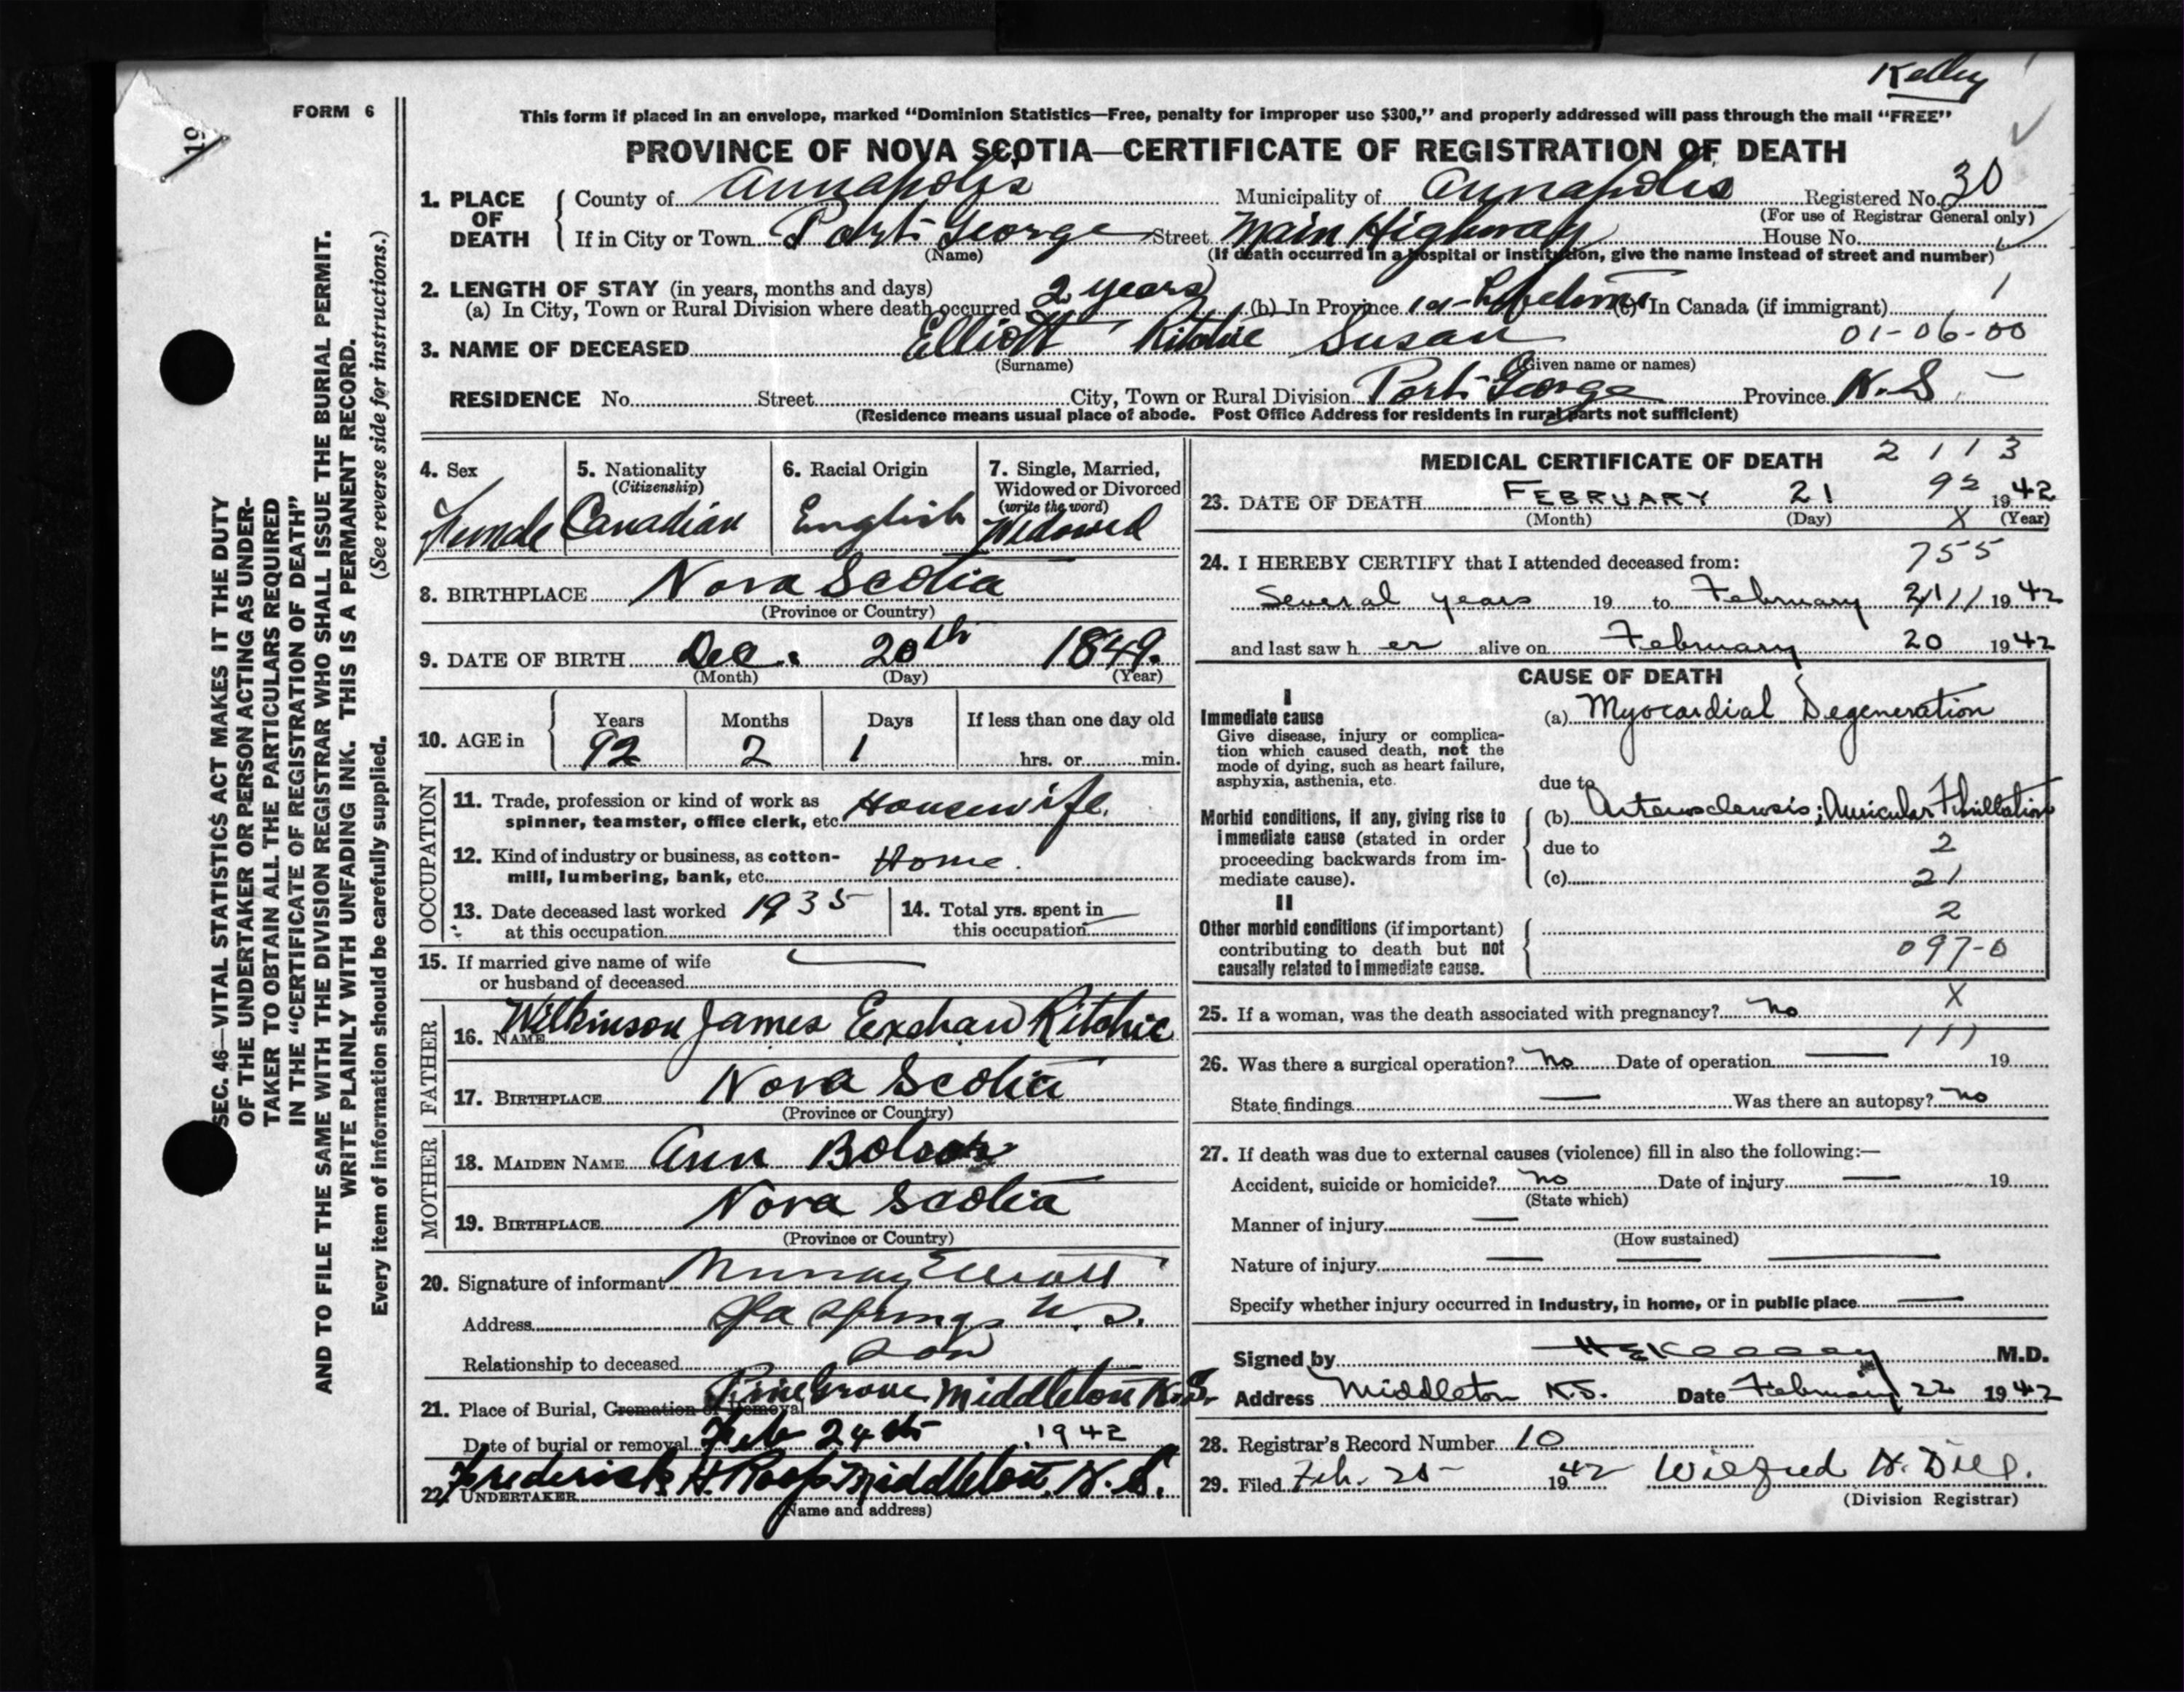 Kelley
FORM 6
19
This form if placed in an envelope, marked "Dominion Statistics—Free, penalty for improper use $300," and properly addressed will pass through the mail "FREE"
PROVINCE OF NOVA SCOTIA—CERTIFICATE OF REGISTRATION OF DEATH
1. PLACE OF DEATH County of Annapolis Municipality of Annapolis Registered No. 30
(For use of Registrar General only)
If in City or Town Port George Street Main Highway House No.
(Name) (If death occurred in a hospital or institution, give the name instead of street and number)
2. LENGTH OF STAY (in years, months and days)
(a) In City, Town or Rural Division where death occurred 2 years (b) In Province Lifetime (c) In Canada (if immigrant) 1
01-06-00
3. NAME OF DECEASED Elliott Ritchie Susan
(Surname) (Given name or names)
RESIDENCE No. Street City, Town or Rural Division Port George Province N.S.
(Residence means usual place of abode. Post Office Address for residents in rural parts not sufficient)
4. Sex 5. Nationality 6. Racial Origin 7. Single, Married,
(Citizenship) Widowed or Divorced
(write the word)
Female Canadian English Widowed
8. BIRTHPLACE Nova Scotia
(Province or Country)
9. DATE OF BIRTH Dec. 20th 1849.
(Month) (Day) (Year)
10. AGE in Years Months Days If less than one day old
92 2 1 hrs. or min.
OCCUPATION
11. Trade, profession or kind of work as
spinner, teamster, office clerk, etc. Housewife.
12. Kind of industry or business, as cotton-
mill, lumbering, bank, etc. Home.
13. Date deceased last worked 1935 14. Total yrs. spent in
at this occupation this occupation
15. If married give name of wife
or husband of deceased
FATHER
16. NAME Wilkinson James Exshaw Ritchie
17. BIRTHPLACE Nova Scotia
(Province or Country)
MOTHER
18. MAIDEN NAME Ann
19. BIRTHPLACE Nova Scotia
(Province or Country)
20. Signature of informant Murray Elliott
Address Spa Springs N.S.
Relationship to deceased Son
21. Place of Burial, Cremation or Removal Pine Grove Middleton N.S.
Date of burial or removal Feb 24th 1942
22. UNDERTAKER Frederick H. Roop Middleton, N.S.
(Name and address)
MEDICAL CERTIFICATE OF DEATH 2 1 1 3
92
23. DATE OF DEATH FEBRUARY 21 1942
(Month) (Day) X (Year)
24. I HEREBY CERTIFY that I attended deceased from: 755
Several years 19 to February 21 1942
and last saw her alive on February 20 1942
CAUSE OF DEATH
I
Immediate cause (a) Myocardial Degeneration
Give disease, injury or complica-
tion which caused death, not the
mode of dying, such as heart failure,
asphyxia, asthenia, etc.
due to
Morbid conditions, if any, giving rise to (b) Arteriosclerosis; Auricular Fibrillation
immediate cause (stated in order due to 2
proceeding backwards from im-
mediate cause). (c) 21
II 2
Other morbid conditions (if important)
contributing to death but not 097-0
causally related to immediate cause.
X
25. If a woman, was the death associated with pregnancy? No
111
26. Was there a surgical operation? No Date of operation 19
State findings Was there an autopsy? No
27. If death was due to external causes (violence) fill in also the following:—
Accident, suicide or homicide? No Date of injury 19
(State which)
Manner of injury
(How sustained)
Nature of injury
Specify whether injury occurred in Industry, in home, or in public place
Signed by H E Kelley M.D.
Address Middleton N.S. Date February 22 1942
28. Registrar's Record Number 10
29. Filed Feb. 25 1942 Wilfred H. Dill.
(Division Registrar)
SEC. 46—VITAL STATISTICS ACT MAKES IT THE DUTY
OF THE UNDERTAKER OR PERSON ACTING AS UNDER-
TAKER TO OBTAIN ALL THE PARTICULARS REQUIRED
IN THE "CERTIFICATE OF REGISTRATION OF DEATH"
AND TO FILE THE SAME WITH THE DIVISION REGISTRAR WHO SHALL ISSUE THE BURIAL PERMIT.
WRITE PLAINLY WITH UNFADING INK. THIS IS A PERMANENT RECORD.
Every item of information should be carefully supplied. (See reverse side for instructions.)